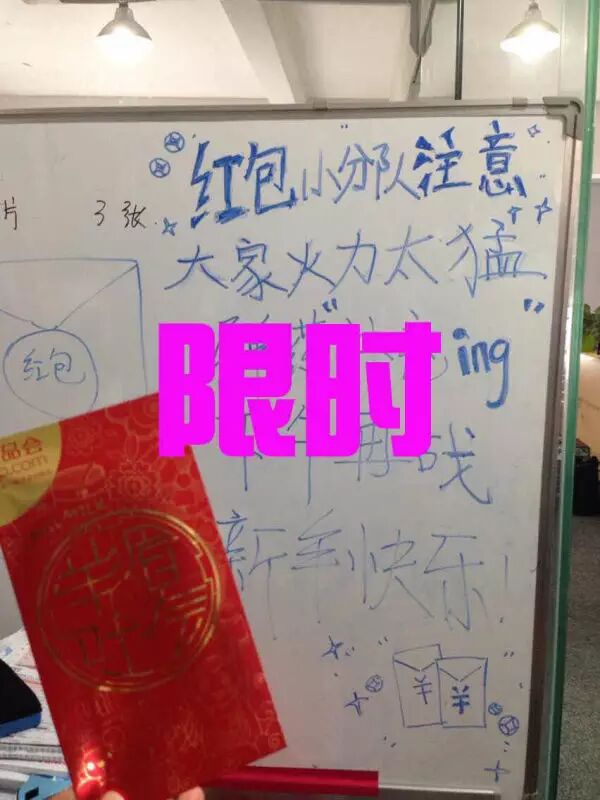 "红包小"分队注意
片 3张
大家火力太猛
ing"
限时
红包
下午再战
品会
.com
新年快乐!
羊眉吐